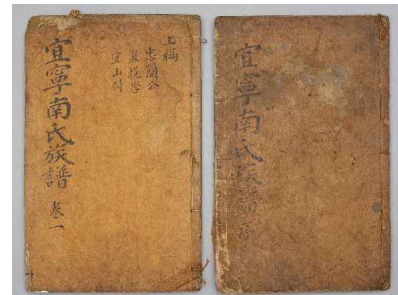 宜寧南氏族譜 卷一
上編
忠簡公
直提學
宜山尉
宜寧南氏族譜